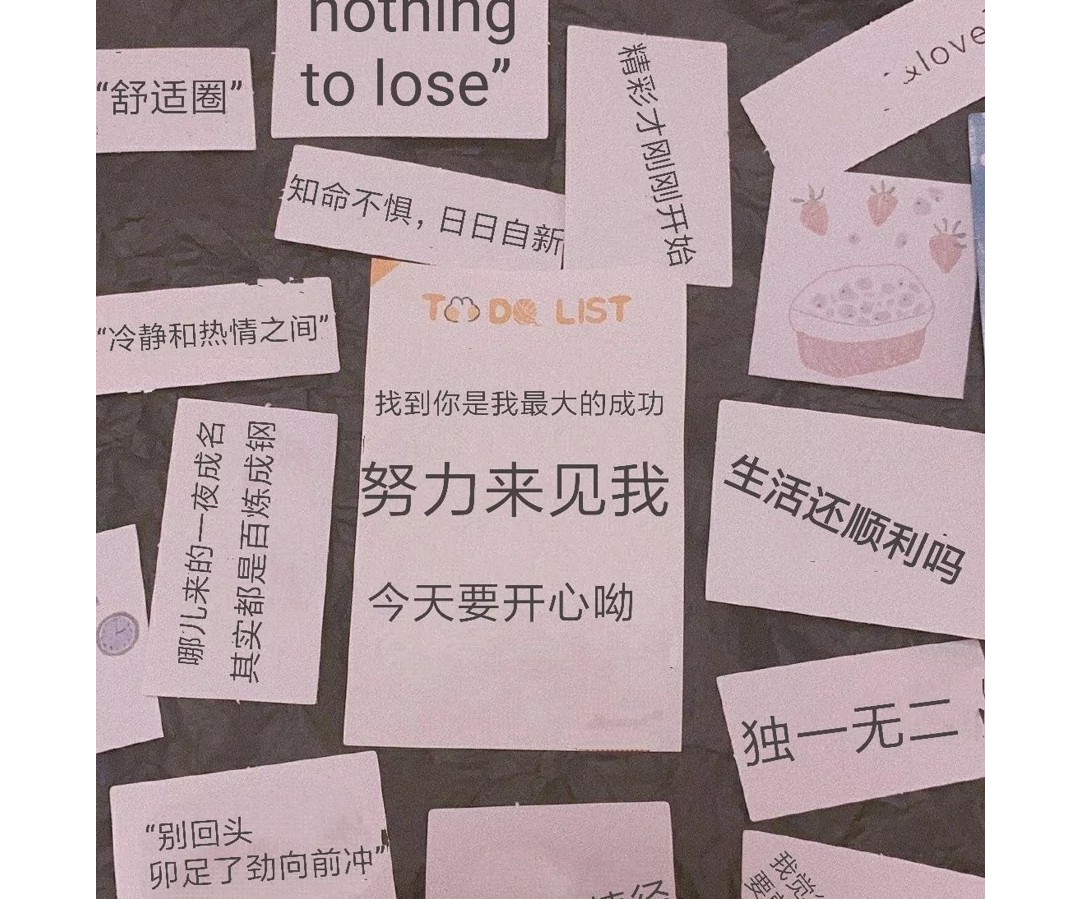 nothing
to lose”
“舒适圈”
精彩才刚刚开始
love
知命不惧，日日自新
“冷静和热情之间”
TO DO LIST
找到你是我最大的成功
努力来见我
今天要开心呦
哪儿来的一夜成名
其实都是百炼成钢
生活还顺利吗
独一无二
“别回头
卯足了劲向前冲”
我觉